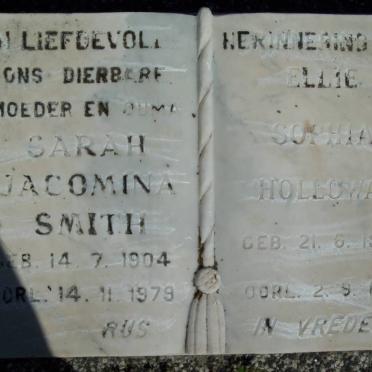 LIEFDEVOLL
ONS DIERBERE
MOEDER EN OUMA
SARAH
JACOMINA
SMITH
GEB. 14.7.1904
OORL. 14.11.1979
RUS
HERINNERING
ELLIE
SOPHIA
HOLLOWA
GEB. 21.6.1
OORL. 2.9.
IN VREDE